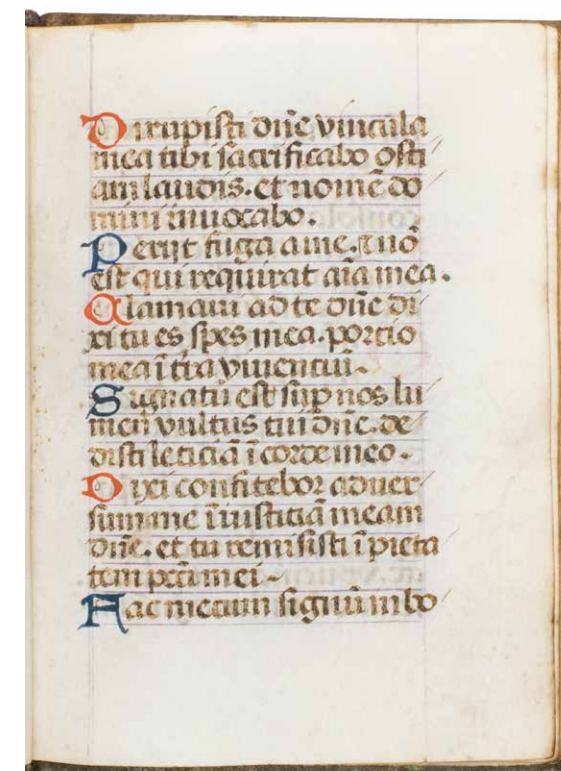 Dirupisti dn̄e vincula
mea tibi sacrificabo osti
am laudis. et nomē do
mini invocabo.
Perijt fuga a me. ⁊ nō
est qui requirat aīa mea.
Clamavi ad te dn̄e di
xi tu es spes mea. portio
mea ī tr̄a viventiū.
Signatū est sup nos lu
men vultus tui dn̄e. de
disti leticiā ī corde meo.
Dixi confitebor adver
sum me īiusticiā meam
dn̄e. et tu remisisti īpieta
tem pc̄i mei.
Fac mecum signū in bo